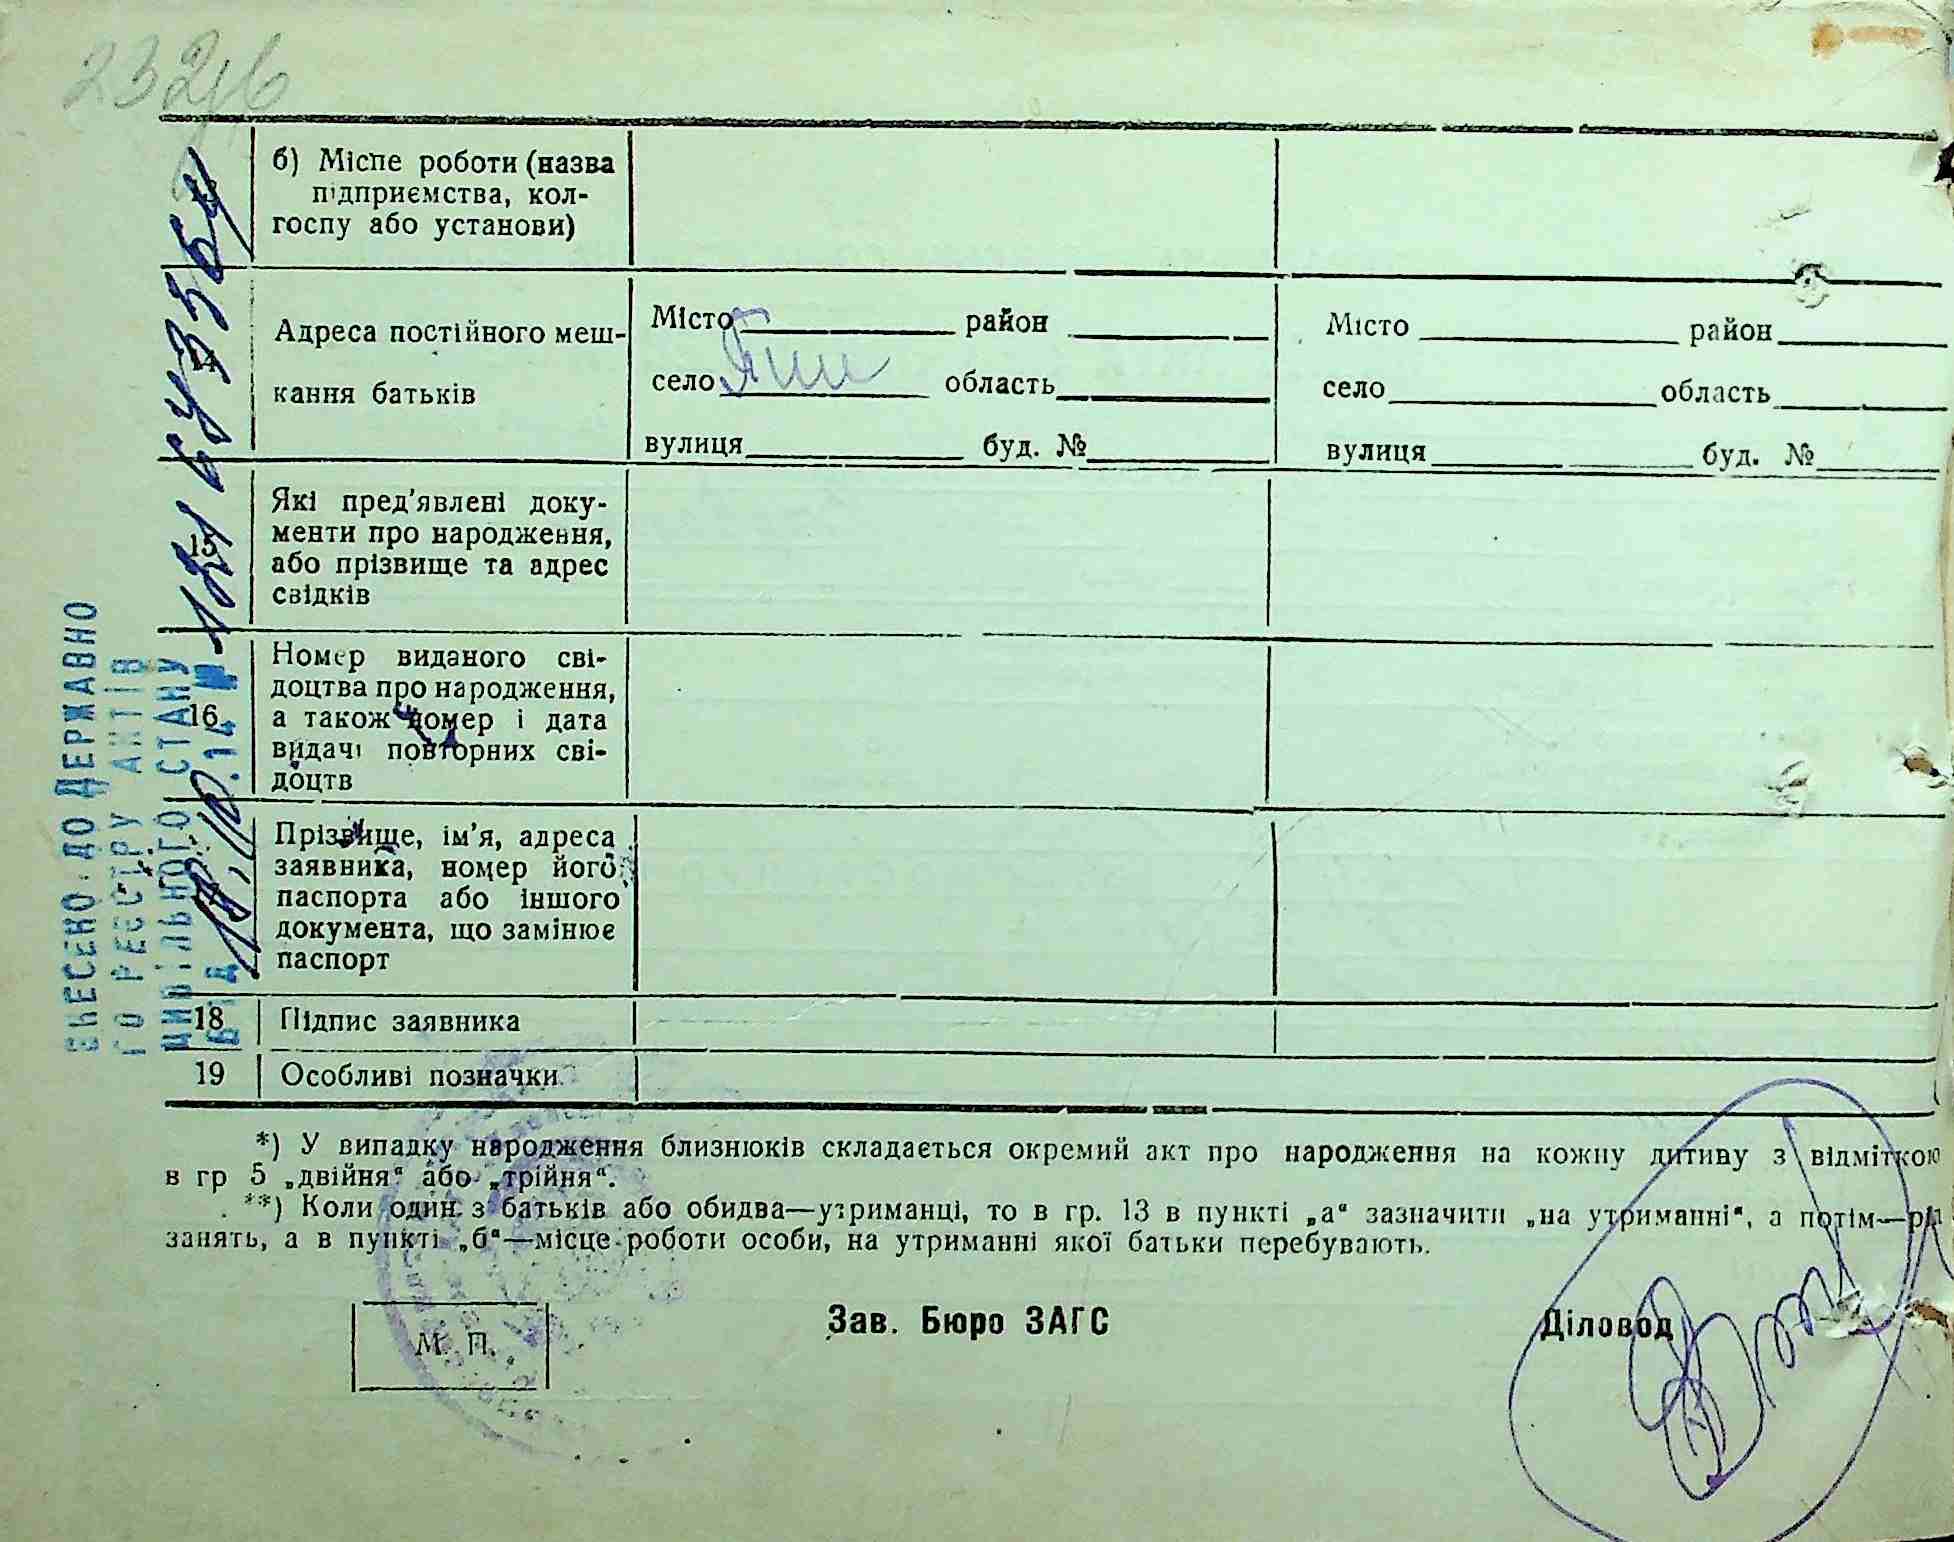 232
б) Місце роботи (назва
підприємства, кол-
госпу або установи)
14
Адреса постійного меш-
кання батьків
Місто район
село область
вулиця буд. №
Місто район
село область
вулиця буд. №
15
Які пред'явлені доку-
менти про народження,
або прізвище та адрес
свідків
16
Номер виданого сві-
доцтва про народження,
а також номер і дата
видачі повторних сві-
доцтв
Прізвище, ім'я, адреса
заявника, номер його
паспорта або іншого
документа, що замінює
паспорт
18 Підпис заявника
19 Особливі позначки
ВНЕСЕНО ДО ДЕРЖАВНО
ГО РЕЄСТРУ АКТІВ
ЦИВІЛЬНОГО СТАНУ
ВІД .10.14 №
*) У випадку народження близнюків складається окремий акт про народження на кожну дитину з відміткою
в гр 5 „двійня“ або „трійня“.
**) Коли один з батьків або обидва—утриманці, то в гр. 13 в пункті „а“ зазначити „на утриманні“, а потім—рід
занять, а в пункті „б“—місце роботи особи, на утриманні якої батьки перебувають.
М. П.
Зав. Бюро ЗАГС
Діловод